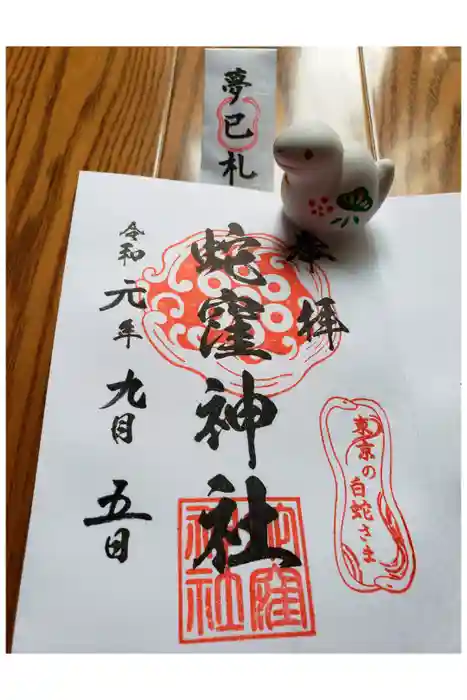 夢巳札
奉拝
蛇窪神社
令和元年九月五日
東京の白蛇さま
蛇窪
神社